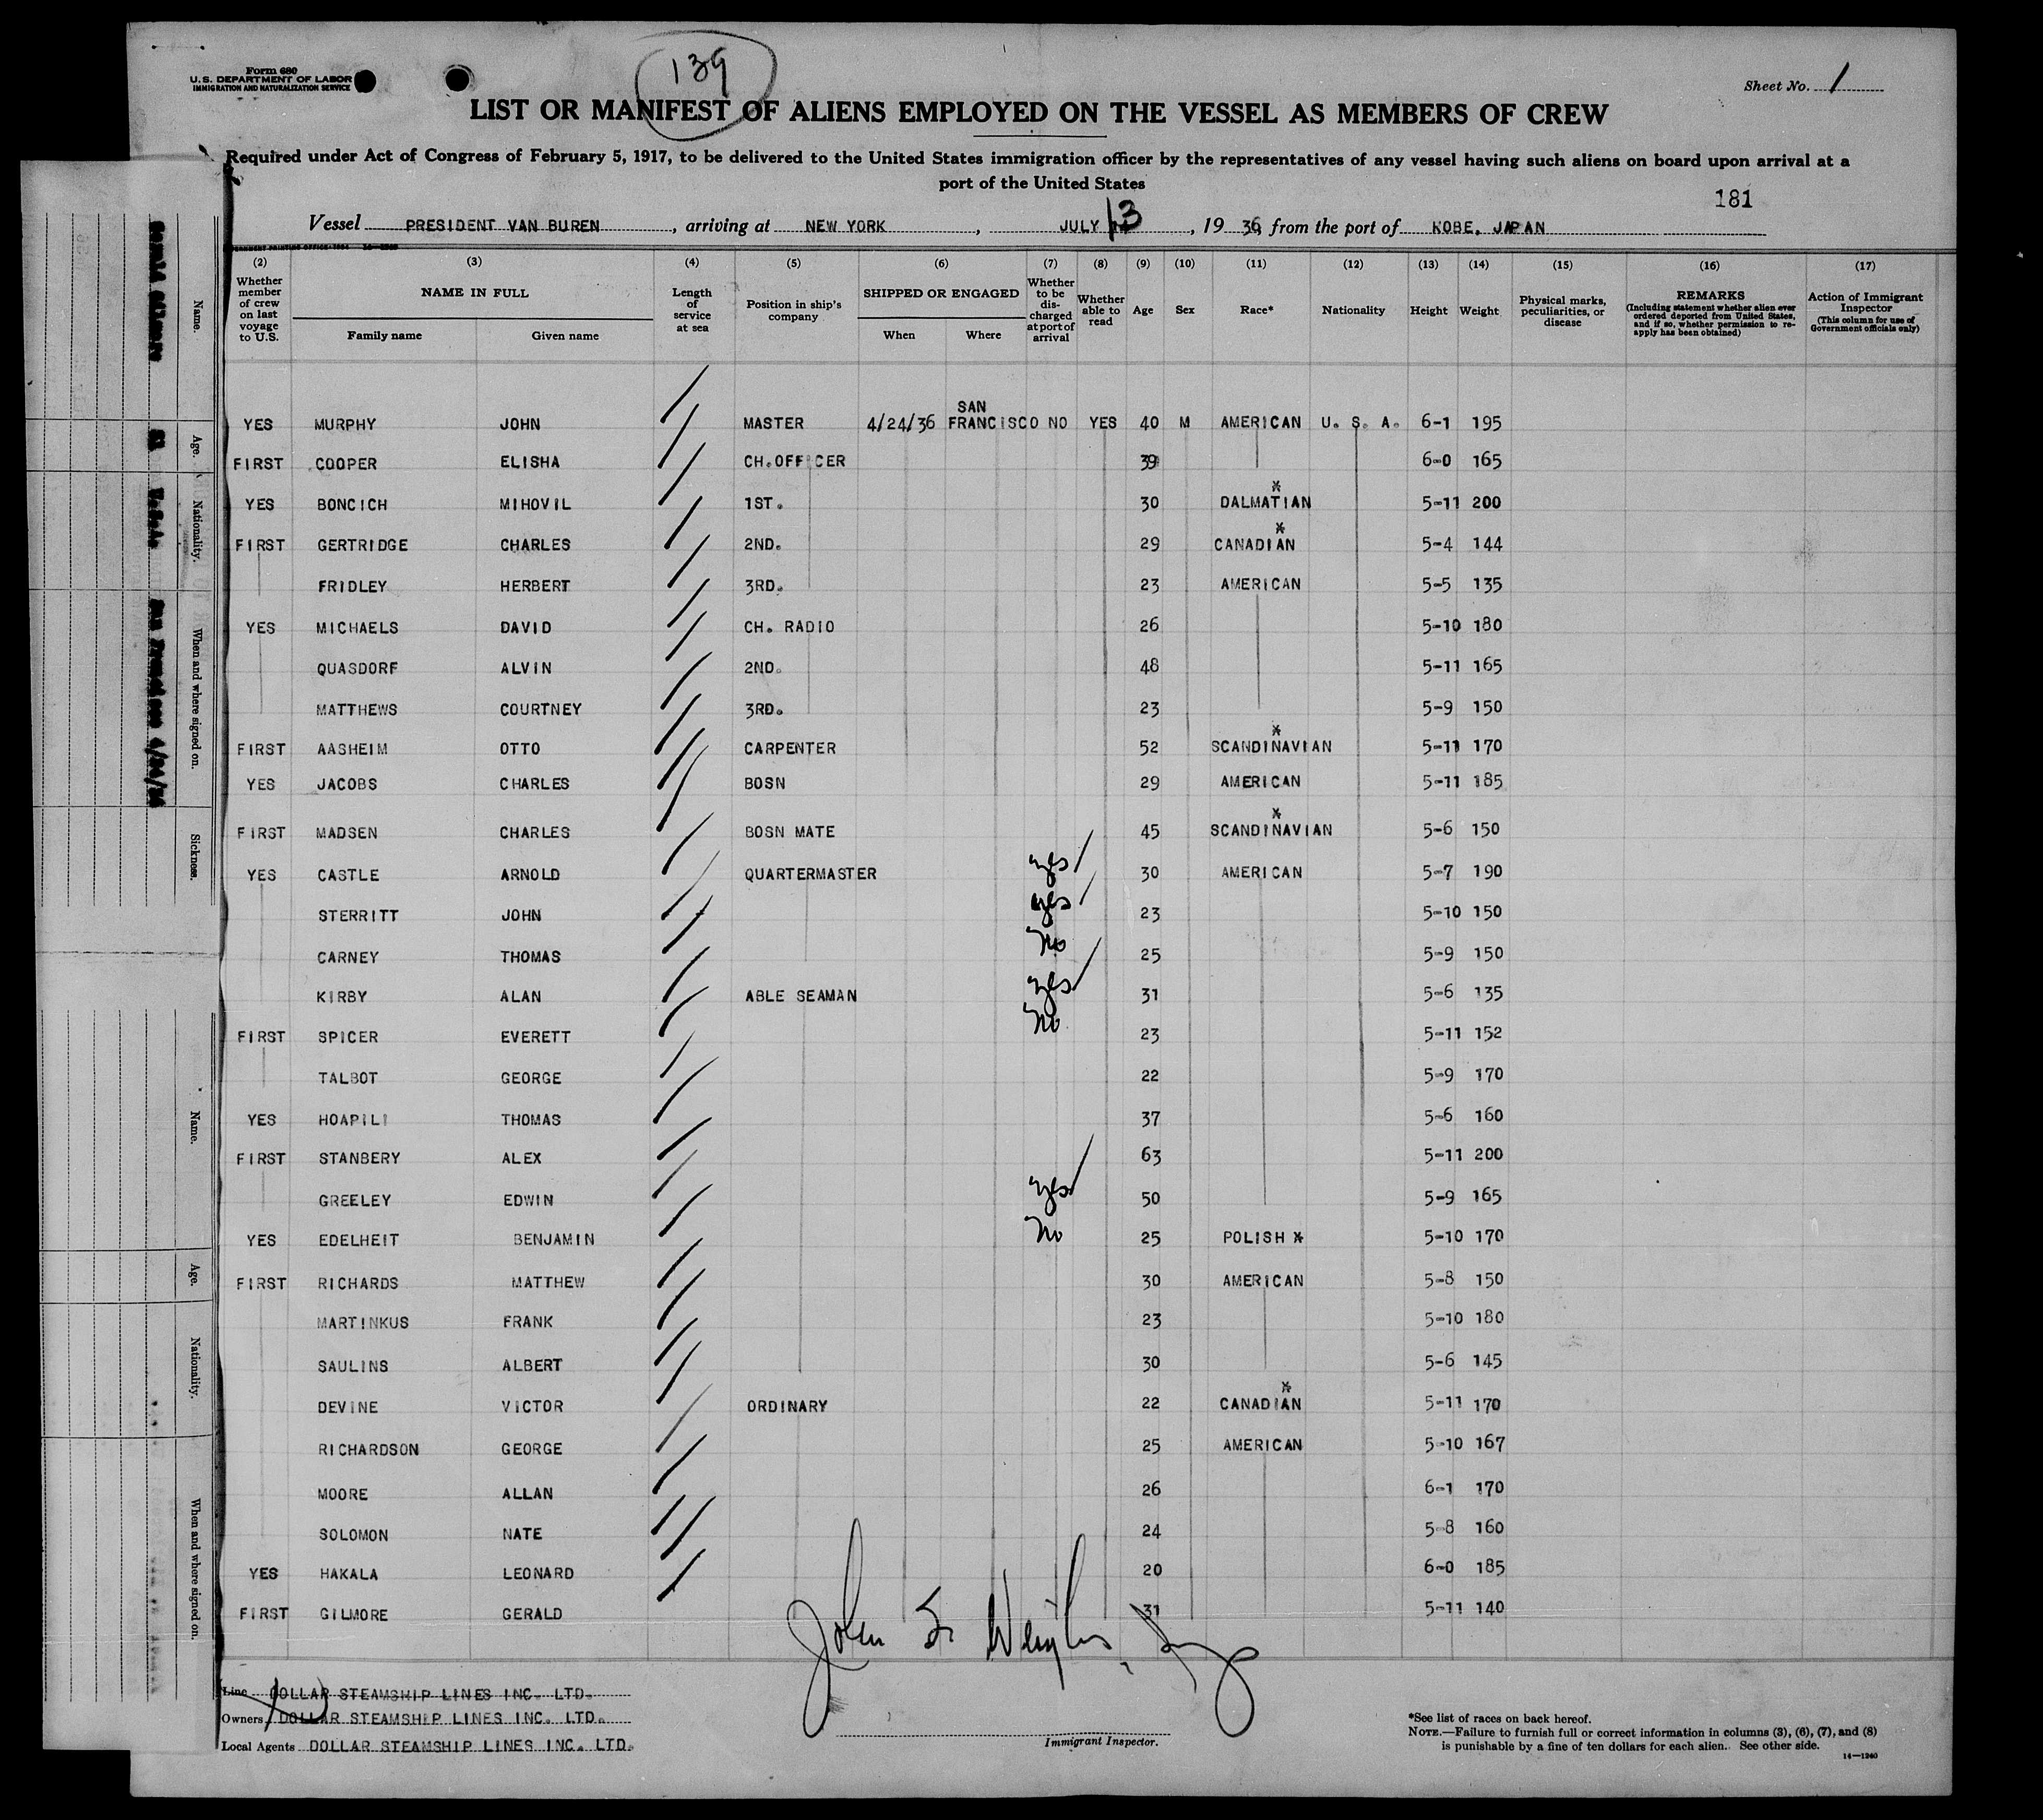 139
Form 680
U.S. DEPARTMENT OF LABOR
IMMIGRATION AND NATURALIZATION SERVICE
Sheet No. 1
LIST OR MANIFEST OF ALIENS EMPLOYED ON THE VESSEL AS MEMBERS OF CREW
Required under Act of Congress of February 5, 1917, to be delivered to the United States immigration officer by the representatives of any vessel having such aliens on board upon arrival at a
port of the United States
181
Vessel PRESIDENT VAN BUREN, arriving at NEW YORK, JULY 13, 1936, from the port of KOBE, JAPAN
(2) (3) (4) (5) (6) (7) (8) (9) (10) (11) (12) (13) (14) (15) (16) (17)
Whether member of crew on last voyage to U.S.
NAME IN FULL
Family name Given name
Length of service at sea
Position in ship's company
SHIPPED OR ENGAGED
When Where
Whether to be discharged at port of arrival
Whether able to read
Age Sex Race* Nationality Height Weight
Physical marks, peculiarities, or disease
REMARKS
(Including statement whether alien ever ordered deported from United States, and if so, whether permission to re-apply has been obtained)
Action of Immigrant Inspector
(This column for use of Government officials only)
YES MURPHY JOHN MASTER 4/24/36 SAN FRANCISCO NO YES 40 M AMERICAN U. S. A. 6-1 195
FIRST COOPER ELISHA CH.OFFICER 39 6-0 165
YES BONCICH MIHOVIL 1ST. 30 DALMATIAN X 5-11 200
FIRST GERTRIDGE CHARLES 2ND. 29 CANADIAN X 5-4 144
FRIDLEY HERBERT 3RD. 23 AMERICAN 5-5 135
YES MICHAELS DAVID CH. RADIO 26 5-10 180
QUASDORF ALVIN 2ND. 48 5-11 165
MATTHEWS COURTNEY 3RD. 23 5-9 150
FIRST AASHEIM OTTO CARPENTER 52 SCANDINAVIAN X 5-11 170
YES JACOBS CHARLES BOSN 29 AMERICAN 5-11 185
FIRST MADSEN CHARLES BOSN MATE 45 SCANDINAVIAN X 5-6 150
YES CASTLE ARNOLD QUARTERMASTER yes 30 AMERICAN 5-7 190
STERRITT JOHN yes 23 5-10 150
CARNEY THOMAS No 25 5-9 150
KIRBY ALAN ABLE SEAMAN yes 31 5-6 135
FIRST SPICER EVERETT No 23 5-11 152
TALBOT GEORGE 22 5-9 170
YES HOAPILI THOMAS 37 5-6 160
FIRST STANBERY ALEX 63 5-11 200
GREELEY EDWIN yes 50 5-9 165
YES EDELHEIT BENJAMIN No 25 POLISH X 5-10 170
FIRST RICHARDS MATTHEW 30 AMERICAN 5-8 150
MARTINKUS FRANK 23 5-10 180
SAULINS ALBERT 30 5-6 145
DEVINE VICTOR ORDINARY 22 CANADIAN X 5-11 170
RICHARDSON GEORGE 25 AMERICAN 5-10 167
MOORE ALLAN 26 6-1 170
SOLOMON NATE 24 5-8 160
YES HAKALA LEONARD 20 6-0 185
FIRST GILMORE GERALD 31 5-11 140
John
Line DOLLAR STEAMSHIP LINES INC. LTD.
Owners DOLLAR STEAMSHIP LINES INC. LTD.
Local Agents DOLLAR STEAMSHIP LINES INC. LTD.
Immigrant Inspector.
*See list of races on back hereof.
NOTE.—Failure to furnish full or correct information in columns (3), (6), (7), and (8)
is punishable by a fine of ten dollars for each alien. See other side.
14—1240
Name.
Age.
Nationality.
When and where signed on.
Sickness.
Name.
Age.
Nationality.
When and where signed on.